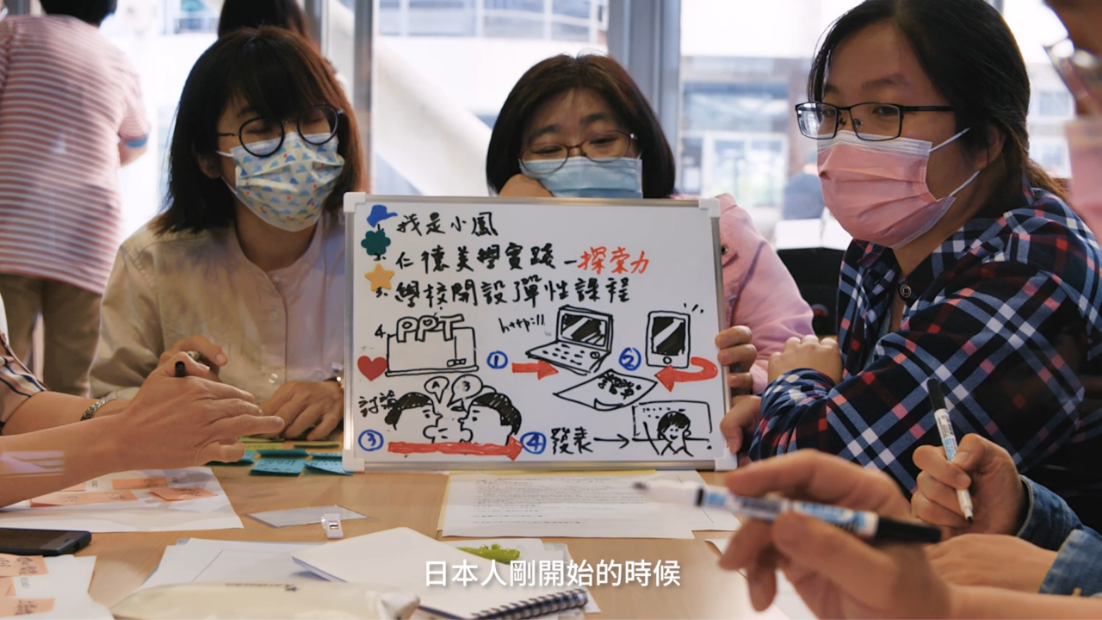 我是小鳳
仁德美學實踐-探索力
3. 學校開設彈性課程
4. PPT
http://
① ②
討論
③ ④ 發表
日本人剛開始的時候